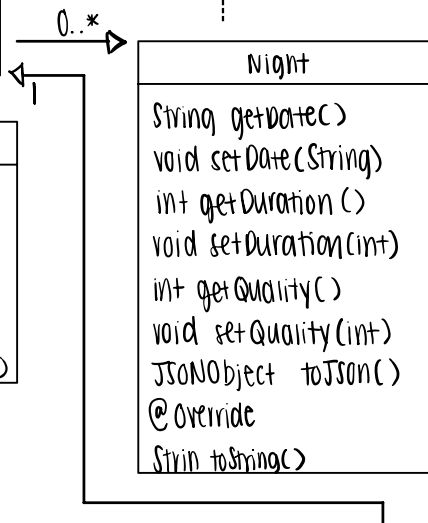 0..*
1
Night
String getDate()
void setDate(String)
int getDuration()
void setDuration(int)
int getQuality()
void setQuality(int)
JSONObject toJson()
@Override
Strin toString()
)